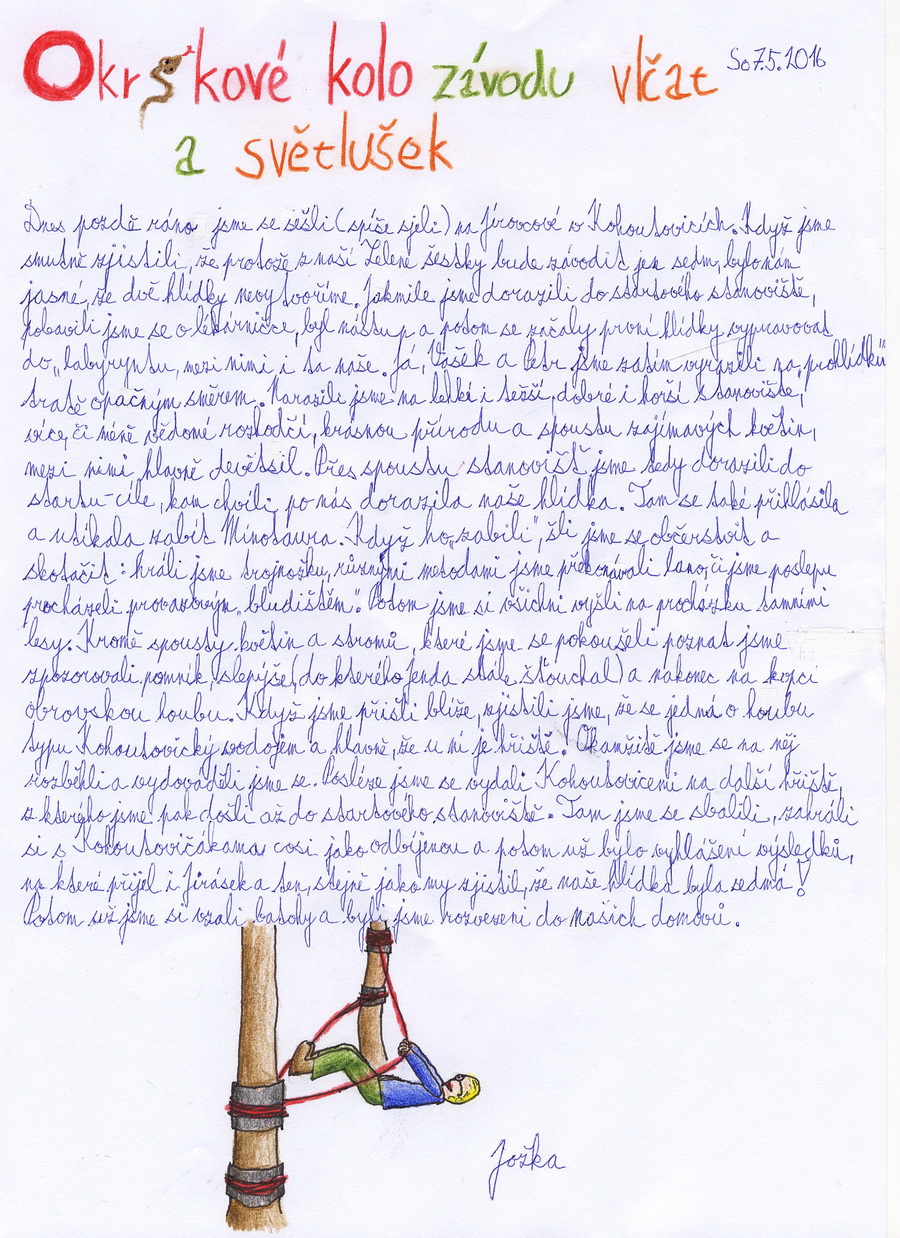 Okrskové kolo závodu vlčat
So 7.5.2016
a světlušek
Dnes pozdě ráno jsme se sešli (spíše sjeli) na Jírovcové v Kohoutovicích. Když jsme
smutně zjistili, že protože z naší Zelené šestky bude závodit jen sedm, bylo nám
jasné, že dvě hlídky nevytvoříme. Jakmile jsme dorazili do startového stanoviště,
pobavili jsme se o lékárničce, byl nástup a potom se začaly první hlídky vypravovat
do „labyryntu, mezi nimi i ta naše. Já, Vašek a Petr jsme zatím vyrazili na prohlídku
tratě opačným směrem. Narazili jsme na lehké i těžší, dobré i horší stanoviště,
více, či méně vědomé rozhodčí, krásnou přírodu a spoustu zajímavých květin,
mezi nimi hlavně devětsil. Přes spoustu stanovišť jsme tedy dorazili do
startu-cíle, kam chvíli po nás dorazila naše hlídka. Tam se také přihlásila
a utíkala zabít Minotaura. Když ho „zabili", šli jsme se občerstvit a
skotačit: hráli jsme trojnožku, různými metodami jsme překonávali lano, či jsme poslepu
procházeli provazovým „bludištěm". Potom jsme si všichni vyšli na procházku tamními
lesy. Kromě spousty květin a stromů, které jsme se pokoušeli poznat jsme
zpozorovali pomník, slepýše (do kterého Jenda stále šťouchal) a nakonec na kopci
obrovskou houbu. Když jsme přišli blíže, zjistili jsme, že se jedná o houbu
typu Kohoutovický vodojem a hlavně, že u ní je hřiště! Okamžitě jsme se na něj
rozběhli a vydováděli jsme se. Posléze jsme se vydali Kohoutovicemi na další hřiště,
z kterého jsme pak došli až do startového stanoviště. Tam jsme se sbalili, zahráli
si s Kohoutovičákama cosi jako odbíjenou a potom už bylo vyhlášení výsledků,
na které přijel i Jirásek a ten, stejně jako my zjistil, že naše hlídka byla sedmá!
Potom už jsme si vzali batohy a byli jsme rozvezeni do našich domovů.
Jožka